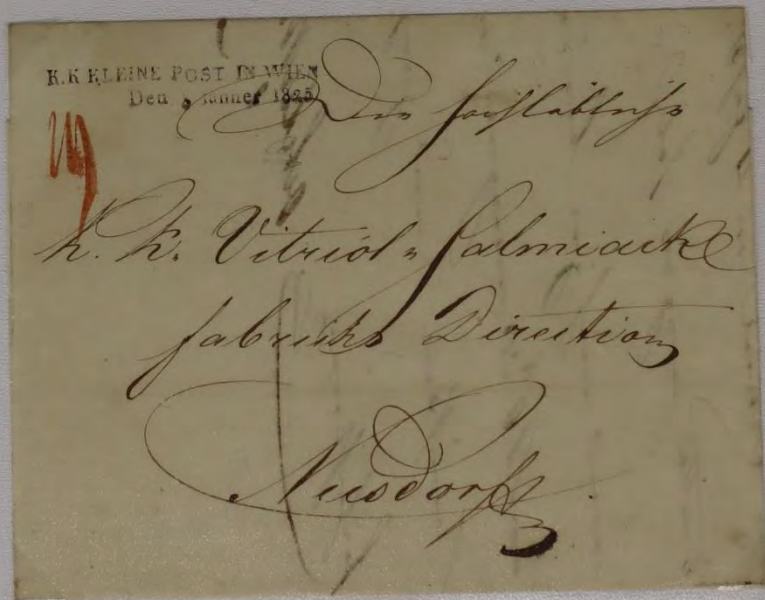 K.K KLEINE POST IN WIEN
Den Jänner 1825
Die hochlöbliche
k. k. Vitriol- Salmiack
fabricks Direction
Nusdorf